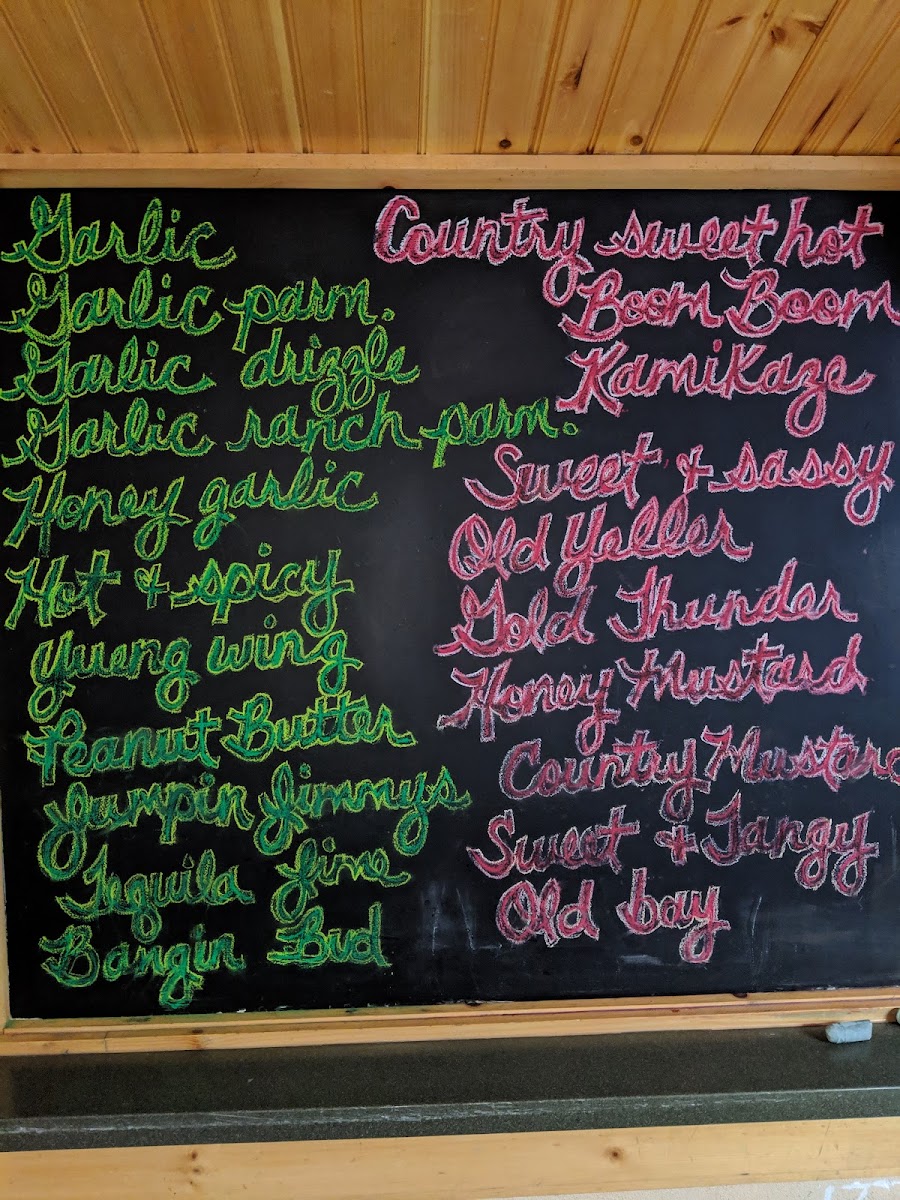 Garlic
Garlic parm.
Garlic drizzle
Garlic ranch parm.
Honey garlic
Hot & spicy
Yueng wing
Peanut Butter
Jumpin Jimmys
Tequila Lime
Bangin Bud
Country sweet hot
Boom Boom
KamiKaze
Sweet & sassy
Old Yeller
Gold Thunder
Honey Mustard
Country Mustard
Sweet & Tangy
Old bay